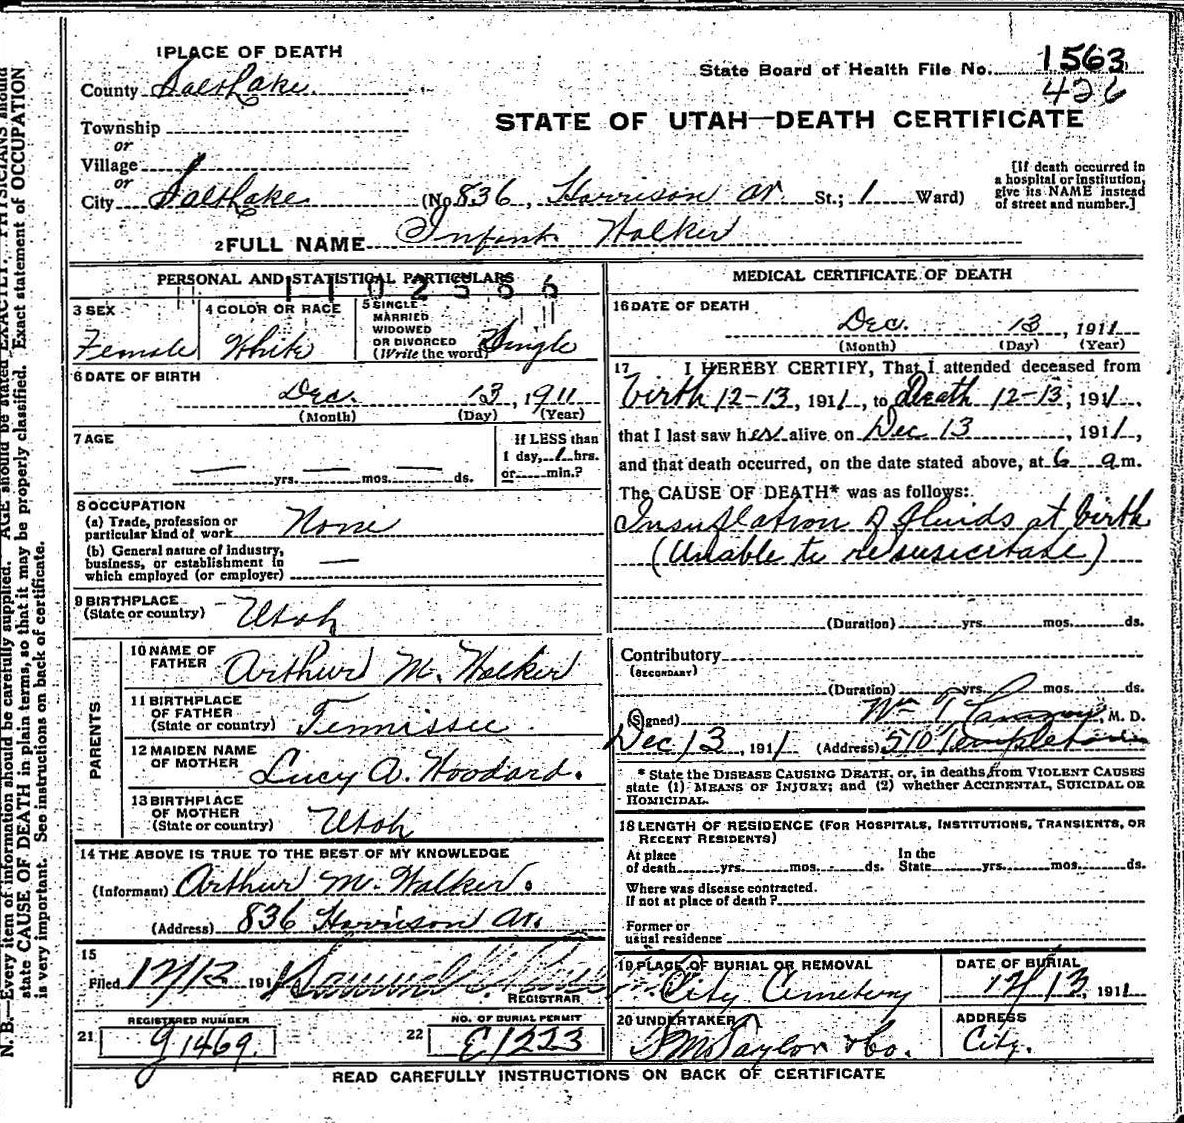 1 PLACE OF DEATH
State Board of Health File No. 1563
426
County Salt Lake
Township
or
Village
or
City Salt Lake (No. 836, Harrison av. St.; 1 Ward)
STATE OF UTAH—DEATH CERTIFICATE
[If death occurred in
a hospital or institution,
give its NAME instead
of street and number.]
2 FULL NAME Infant Walker
PERSONAL AND STATISTICAL PARTICULARS
3 SEX
Female
4 COLOR OR RACE
White
5 SINGLE
MARRIED
WIDOWED
OR DIVORCED
(Write the word)
Single
6 DATE OF BIRTH
Dec. 13, 1911
(Month) (Day) (Year)
7 AGE
yrs. mos. ds.
If LESS than
1 day, 1 hrs.
or min.?
8 OCCUPATION
(a) Trade, profession or
particular kind of work None
(b) General nature of industry,
business, or establishment in
which employed (or employer) —
9 BIRTHPLACE
(State or country) Utah
PARENTS
10 NAME OF
FATHER Arthur M. Walker
11 BIRTHPLACE
OF FATHER
(State or country) Tennissee
12 MAIDEN NAME
OF MOTHER Lucy A. Woodard.
13 BIRTHPLACE
OF MOTHER
(State or country) Utah
14 THE ABOVE IS TRUE TO THE BEST OF MY KNOWLEDGE
(Informant) Arthur M. Walker.
(Address) 836 Harrison av.
15
Filed 12/13 1911
REGISTRAR
21 REGISTERED NUMBER
G1469.
22 NO. OF BURIAL PERMIT
E1223
MEDICAL CERTIFICATE OF DEATH
16 DATE OF DEATH
Dec. 13, 1911
(Month) (Day) (Year)
17 I HEREBY CERTIFY, That I attended deceased from
birth 12-13, 1911, to Death 12-13, 1911,
that I last saw her alive on Dec 13, 1911,
and that death occurred, on the date stated above, at 6 a m.
The CAUSE OF DEATH* was as follows:
Insuflation of fluids at birth
(Unable to resusicitate)
(Duration) yrs. mos. ds.
Contributory
(SECONDARY)
(Duration) yrs. mos. ds.
(Signed) Wm T, M. D.
Dec 13, 1911 (Address) 510 Templeton
* State the DISEASE CAUSING DEATH, or, in deaths from VIOLENT CAUSES
state (1) MEANS OF INJURY; and (2) whether ACCIDENTAL, SUICIDAL OR
HOMICIDAL.
18 LENGTH OF RESIDENCE (FOR HOSPITALS, INSTITUTIONS, TRANSIENTS, OR
RECENT RESIDENTS)
At place
of death yrs. mos. ds.
In the
State yrs. mos. ds.
Where was disease contracted.
if not at place of death?
Former or
usual residence
19 PLACE OF BURIAL OR REMOVAL
City Cemetery
DATE OF BURIAL
12/13, 1911
20 UNDERTAKER
S M Taylor & Co.
ADDRESS
City.
READ CAREFULLY INSTRUCTIONS ON BACK OF CERTIFICATE
N. B.—Every item of information should be carefully supplied. AGE should be stated EXACTLY. PHYSICIANS should
state CAUSE OF DEATH in plain terms, so that it may be properly classified. Exact statement of OCCUPATION
is very important. See instructions on back of certificate.